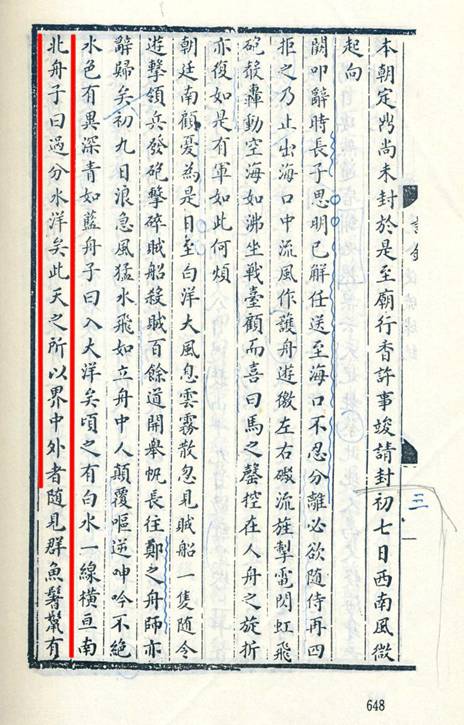 本朝定鼎尚未封於是至廟行香許事竣請封初七日西南風微
起向
闕叩辭時長子思明已解任送至海口不忍分離必欲隨侍再四
拒之乃止出海口中流風作護舟遊徼左右礟流旌掣電閃虹飛
砲聲轟動空海如沸坐戰臺顧而喜曰馬之罄控在人舟之旋折
亦復如是有軍如此何煩
朝廷南顧憂為是日至白洋大風息雲霧散忽見賊船一隻隨令
遊擊領兵發砲擊碎賊船殺賊百餘道開舉帆長往鄭之舟師亦
辭歸矣初九日浪急風猛水飛如立舟中人顛覆嘔逆呻吟不絕
水色有異深青如藍舟子曰入大洋矣頃之有白水一線橫亘南
北舟子曰過分水洋矣此天之所以界中外者隨見群魚鬐鬣有
三
648